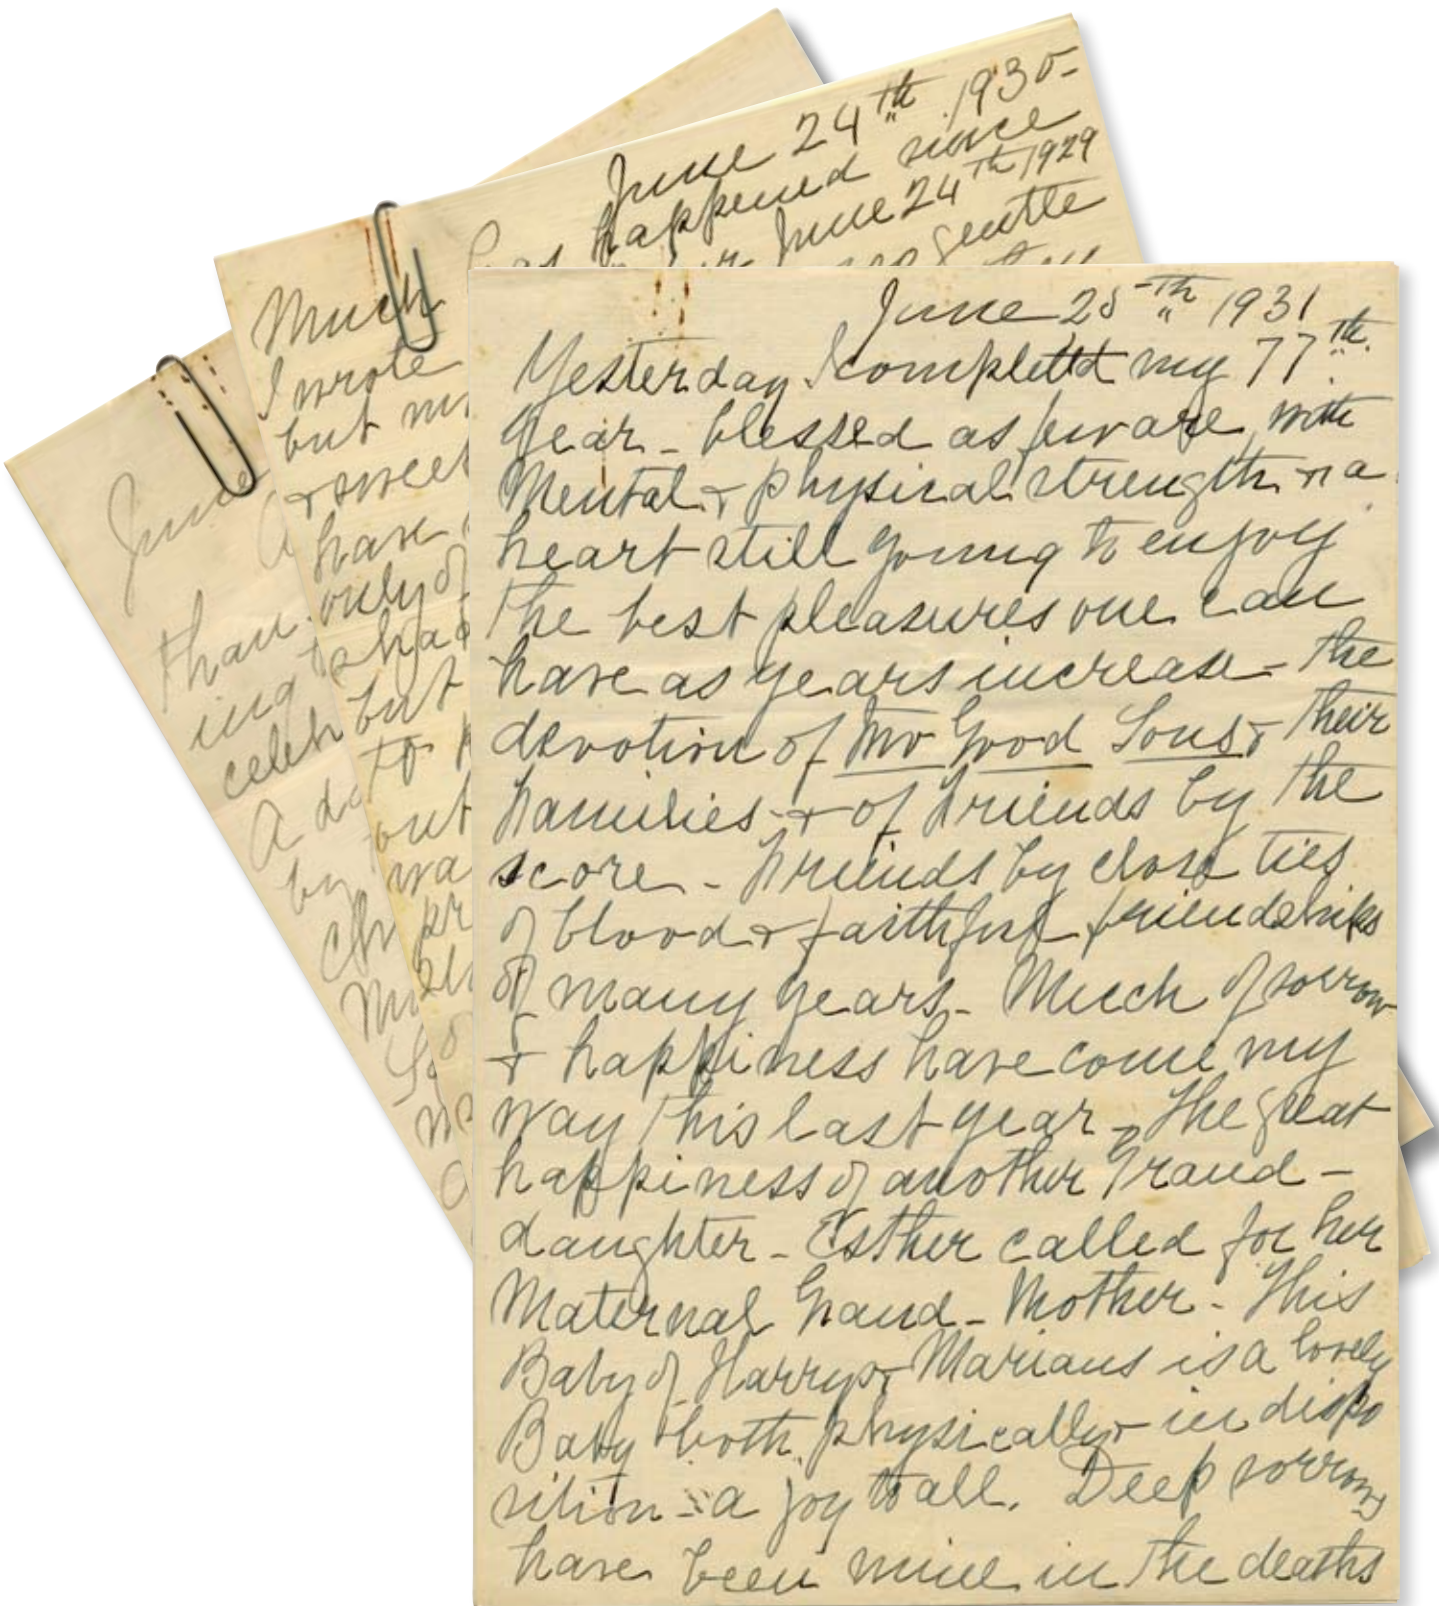 June 24th 1930-
Much has happened since
I wrote June 24th 1929
but gentle
& sweet
have
only of
sha
but
to
out
wa
pr
June
than
ing
celeb
A
by
June 25th 1931
Yesterday I completed my 77th
year - blessed as few are, with
Mental & physical strength & a
heart still young to enjoy
the best pleasures one can
have as years increase - the
devotion of two Good Sons & their
Families - & of Friends by the
score - Friends by close ties
of blood & faithful friendships
of many years - Much of sorrow
& happiness have come my
way this last year - The great
happiness of another Grand-
daughter - Esther called for her
Maternal Grand-Mother - This
Baby of Harry & Marians is a lovely
Baby both physically & in dispo
sition - a joy to all. Deep sorrows
have been mine in the deaths